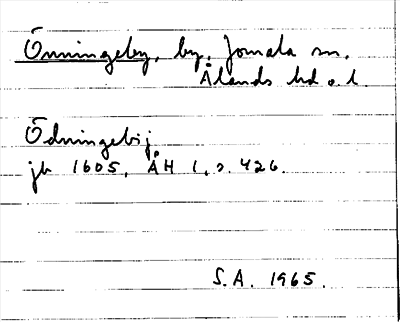 Önningeby, by, Jomala sn,
Ålands hd o. l.
Ödningebij
jb 1605, ÅH 1, s. 426.
S.A. 1965.